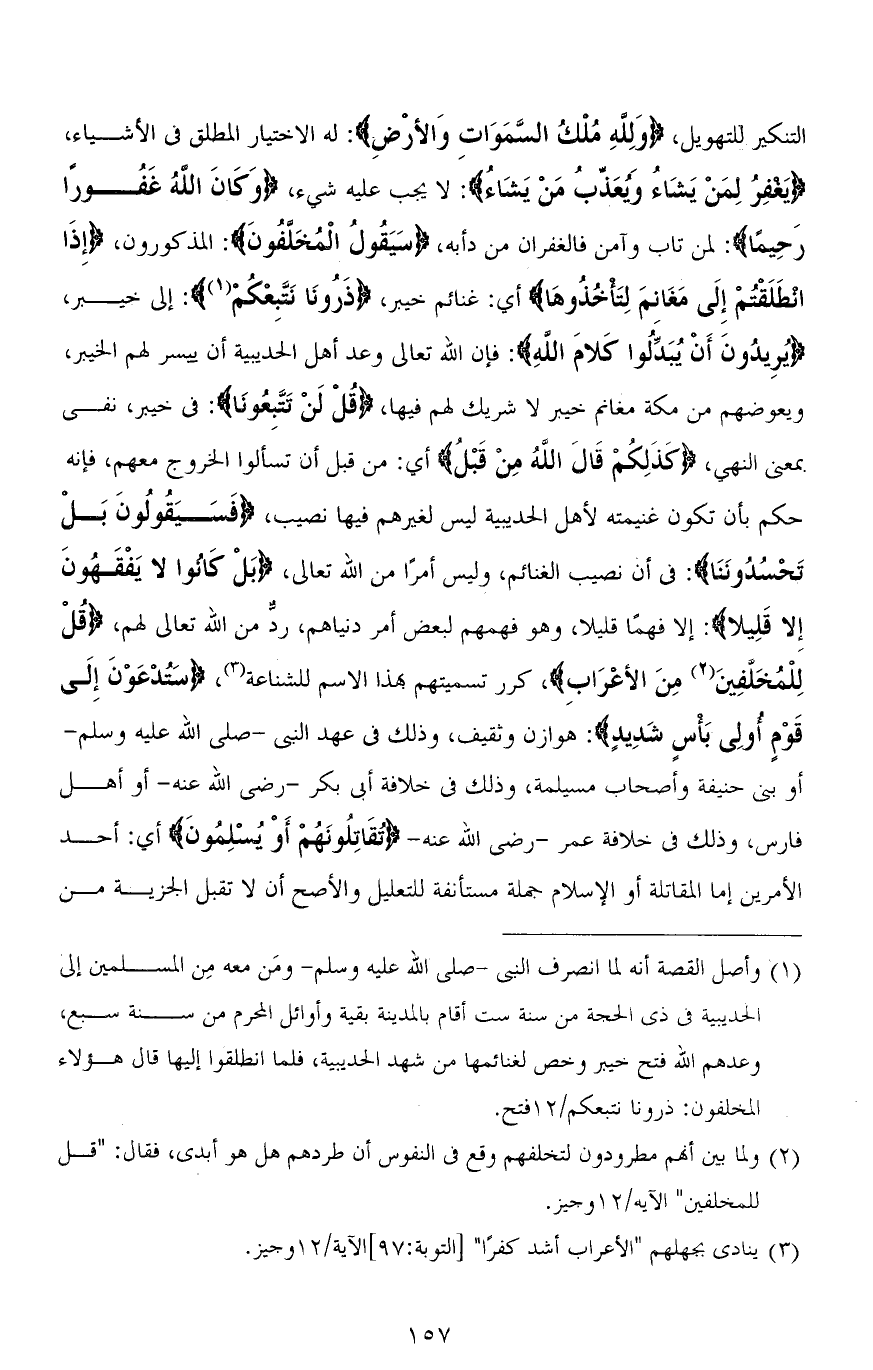 التنكير للتهويل، ﴿وَلِلَّهِ مُلْكُ السَّمَوَاتِ وَالأَرْضِ﴾: له الاختيار المطلق فى الأشـــياء،
﴿يَغْفِرُ لِمَنْ يَشَاءُ وَيُعَذِّبُ مَنْ يَشَاءُ﴾: لا يجب عليه شيء، ﴿وَكَانَ اللَّهُ غَفُـــورًا
رَحِيمًا﴾: لمن تاب وآمن فالغفران من دأبه، ﴿سَيَقُولُ الْمُخَلَّفُونَ﴾: المذكورون، ﴿إِذَا
انْطَلَقْتُمْ إِلَى مَغَانِمَ لِتَأْخُذُوهَا﴾ أي: غنائم خيبر، ﴿ذَرُونَا نَتَّبِعْكُمْ(١)﴾: إلى خيـــبر،
﴿يُرِيدُونَ أَنْ يُبَدِّلُوا كَلامَ اللَّهِ﴾: فإن الله تعالى وعد أهل الحديبية أن ييسر لهم الخيبر،
ويعوضهم من مكة مغانم خيبر لا شريك لهم فيها، ﴿قُلْ لَنْ تَتَّبِعُونَا﴾: فى خيبر، نفـــى
بمعنى النهي، ﴿كَذَلِكُمْ قَالَ اللَّهُ مِنْ قَبْلُ﴾ أي: من قبل أن تسألوا الخروج معهم، فإنه
حكم بأن تكون غنيمته لأهل الحديبية ليس لغيرهم فيها نصيب، ﴿فَسَـــيَقُولُونَ بَـــلْ
تَحْسُدُونَنَا﴾: فى أن نصيب الغنائم، وليس أمرًا من الله تعالى، ﴿بَلْ كَانُوا لا يَفْقَـهُونَ
إِلا قَلِيلا﴾: إلا فهمًا قليلا، وهو فهمهم لبعض أمر دنياهم، ردٌّ من الله تعالى لهم، ﴿قُلْ
لِلْمُخَلَّفِينَ(٢) مِنَ الأَعْرَابِ﴾، كرر تسميتهم بهذا الاسم للشناعة(٣)، ﴿سَتُدْعَوْنَ إِلَـى
قَوْمٍ أُولِى بَأْسٍ شَدِيدٍ﴾: هوازن وثقيف، وذلك فى عهد النبى -صلى الله عليه وسلم-
أو بنى حنيفة وأصحاب مسيلمة، وذلك فى خلافة أبى بكر -رضى الله عنه- أو أهـــل
فارس، وذلك فى خلافة عمر -رضى الله عنه- ﴿تُقَاتِلُونَهُمْ أَوْ يُسْلِمُونَ﴾ أي: أحـــد
الأمرين إما المقاتلة أو الإسلام جملة مستأنفة للتعليل والأصح أن لا تقبل الجزيـــة مـــن
(١) وأصل القصة أنه لما انصرف النبى -صلى الله عليه وسلم- ومَن معه مِن المســـلمين إلى
الحديبية فى ذى الحجة من سنة ست أقام بالمدينة بقية وأوائل المحرم من ســـنة ســـبع،
وعدهم الله فتح خيبر وخص لغنائمها من شهد الحديبية، فلما انطلقوا إليها قال هـــؤلاء
المخلفون: ذرونا نتبعكم/١٢فتح.
(٢) ولما بين أنهم مطرودون لتخلفهم وقع فى النفوس أن طردهم هل هو أبدى، فقال: "قـــل
للمخلفين" الآيه/١٢وجيز.
(٣) ينادى بجهلهم "الأعراب أشد كفرًا" [التوبة:٩٧]الآية/١٢وجيز.
١٥٧